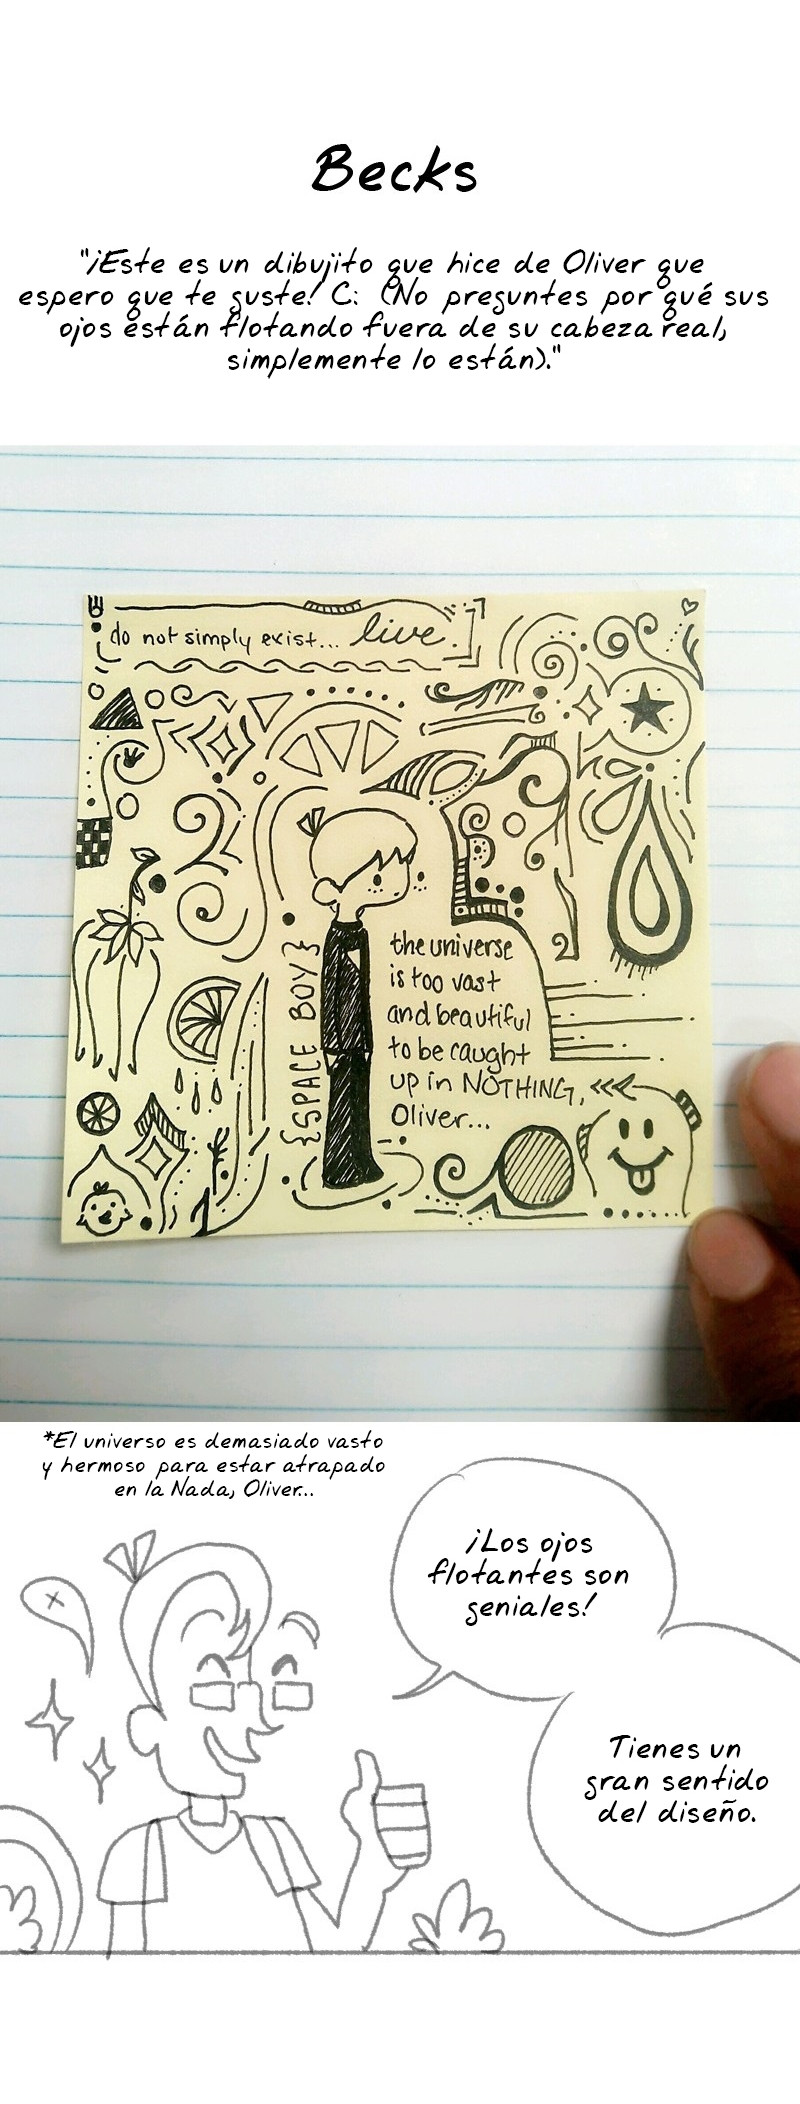 Becks
"¡Este es un dibujito que hice de Oliver que
espero que te guste! C: (No preguntes por qué sus
ojos están flotando fuera de su cabeza real,
simplemente lo están)."
do not simply exist... live.
{SPACE BOY}
the universe
is too vast
and beautiful
to be caught
up in NOTHING,
Oliver...
*El universo es demasiado vasto
y hermoso para estar atrapado
en la Nada, Oliver...
¡Los ojos
flotantes son
geniales!
Tienes un
gran sentido
del diseño.